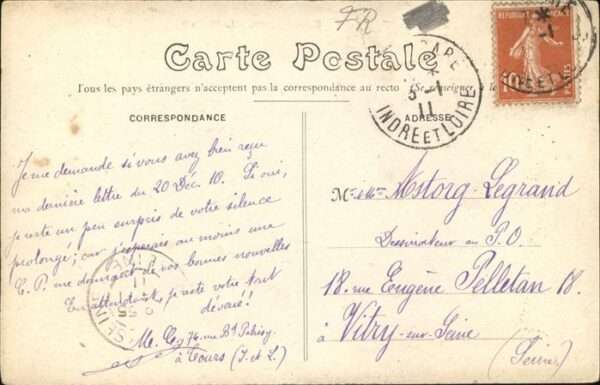 FR
Carte Postale
Tous les pays étrangers n'acceptent pas la correspondance au recto (Se renseigner à la
CORRESPONDANCE
ADRESSE
Je me demande si vous avez bien reçu
ma dernière lettre du 20 Déc. 10. Si oui,
je reste un peu surpris de votre silence
prolongé; car j'espérais au moins une
C. P. me donnant de vos bonnes nouvelles
En attendant, je reste votre tout
dévoué!
74 rue Bd
à Tours (I. et L.)
Astorg-Legrand
Dessinateur au P.O.
18. rue Eugène Pelletan 18.
à Vitry-sur-Seine
(Seine)
GARE
3-1
11
INDRE ET LOIRE
REPUBLIQUE
10